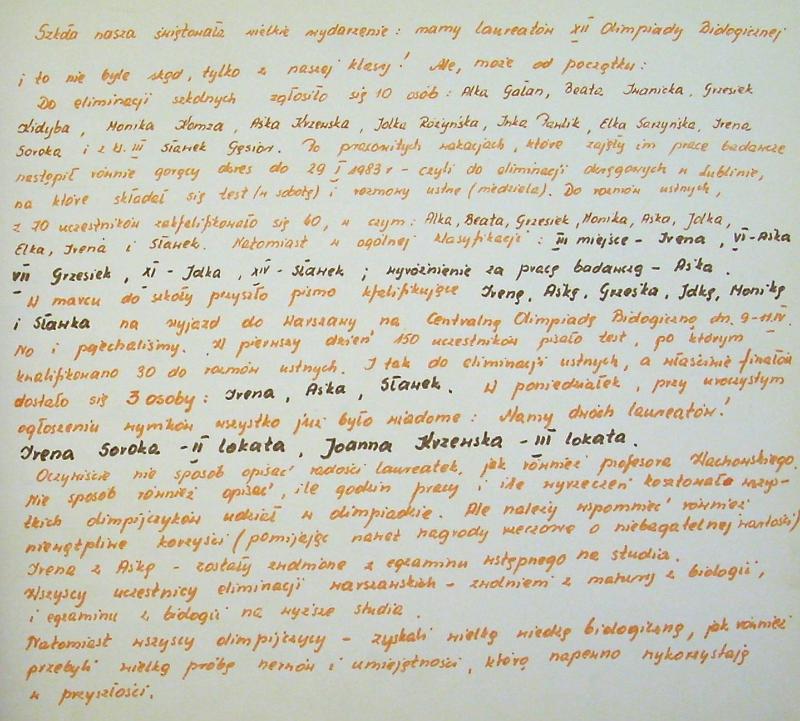 Szkoła nasza świętowała wielkie wydarzenie: mamy laureatów XII Olimpiady Biologicznej
i to nie byle skąd, tylko z naszej klasy! Ale, może od początku:
Do eliminacji szkolnych zgłosiło się 10 osób: Alka Galan, Beata Iwanicka, Grzesiek
Kidyba, Monika Komza, Aśka Krzewska, Jolka Różyńska, Inka Pawlik, Elka Sarzyńska, Irena
Soroka i z kl. III Sławek Gęsior. Po pracowitych wakacjach, które zajęły im prace badawcze
nastąpił równie gorący okres do 29 I 1983 r - czyli do eliminacji okręgowych w Lublinie,
na które składał się test (w sobotę) i rozmowy ustne (niedziela). Do rozmów ustnych,
z 70 uczestników zakfalifikowało się 40, w czym: Alka, Beata, Grzesiek, Monika, Aśka, Jolka,
Elka, Irena i Sławek. Natomiast w ogólnej klasyfikacji: III miejsce - Irena, VI - Aśka
VII Grzesiek, XI - Jolka, XIV - Sławek; wyróżnienie za pracę badawczą - Aśka.
W marcu do szkoły przyszło pismo kfalifikujące Irenę, Aśkę, Grześka, Jolkę, Monikę
i Sławka na wyjazd do Warszawy na Centralną Olimpiadę Biologiczną dn. 9-11.IV.
No i pojechaliśmy. W pierwszy dzień 150 uczestników pisało test, po którym
kwalifikowano 30 do rozmów ustnych. I tak do eliminacji ustnych, a właściwie finałów
dostało się 3 osoby: Irena, Aśka, Sławek. W poniedziałek, przy uroczystym
ogłoszeniu wyników wszystko już było wiadome: Mamy dwóch laureatów!
Irena Soroka - II lokata, Joanna Krzewska - III lokata.
Oczywiście nie sposób opisać radości laureatek, jak również profesora Wachowskiego.
Nie sposób również opisać, ile godzin pracy i ile wyrzeczeń kosztowała wszys-
tkich olimpijczyków udział w olimpiadzie. Ale należy wspomnieć również
niewątpliwe korzyści (pomijając nawet nagrody rzeczowe o niebagatelnej wartości)
Irena z Aśką - zostały zwolnione z egzaminu wstępnego na studia.
Wszyscy uczestnicy eliminacji warszawskich - zwolnieni z matury z biologii,
i egzaminu z biologii na wyższe studia.
Natomiast wszyscy olimpijczycy - zyskali wielką wiedzę biologiczną, jak również
przebyli wielką próbę nerwów i umiejętności, którą napewno wykorzystają
w przyszłości.